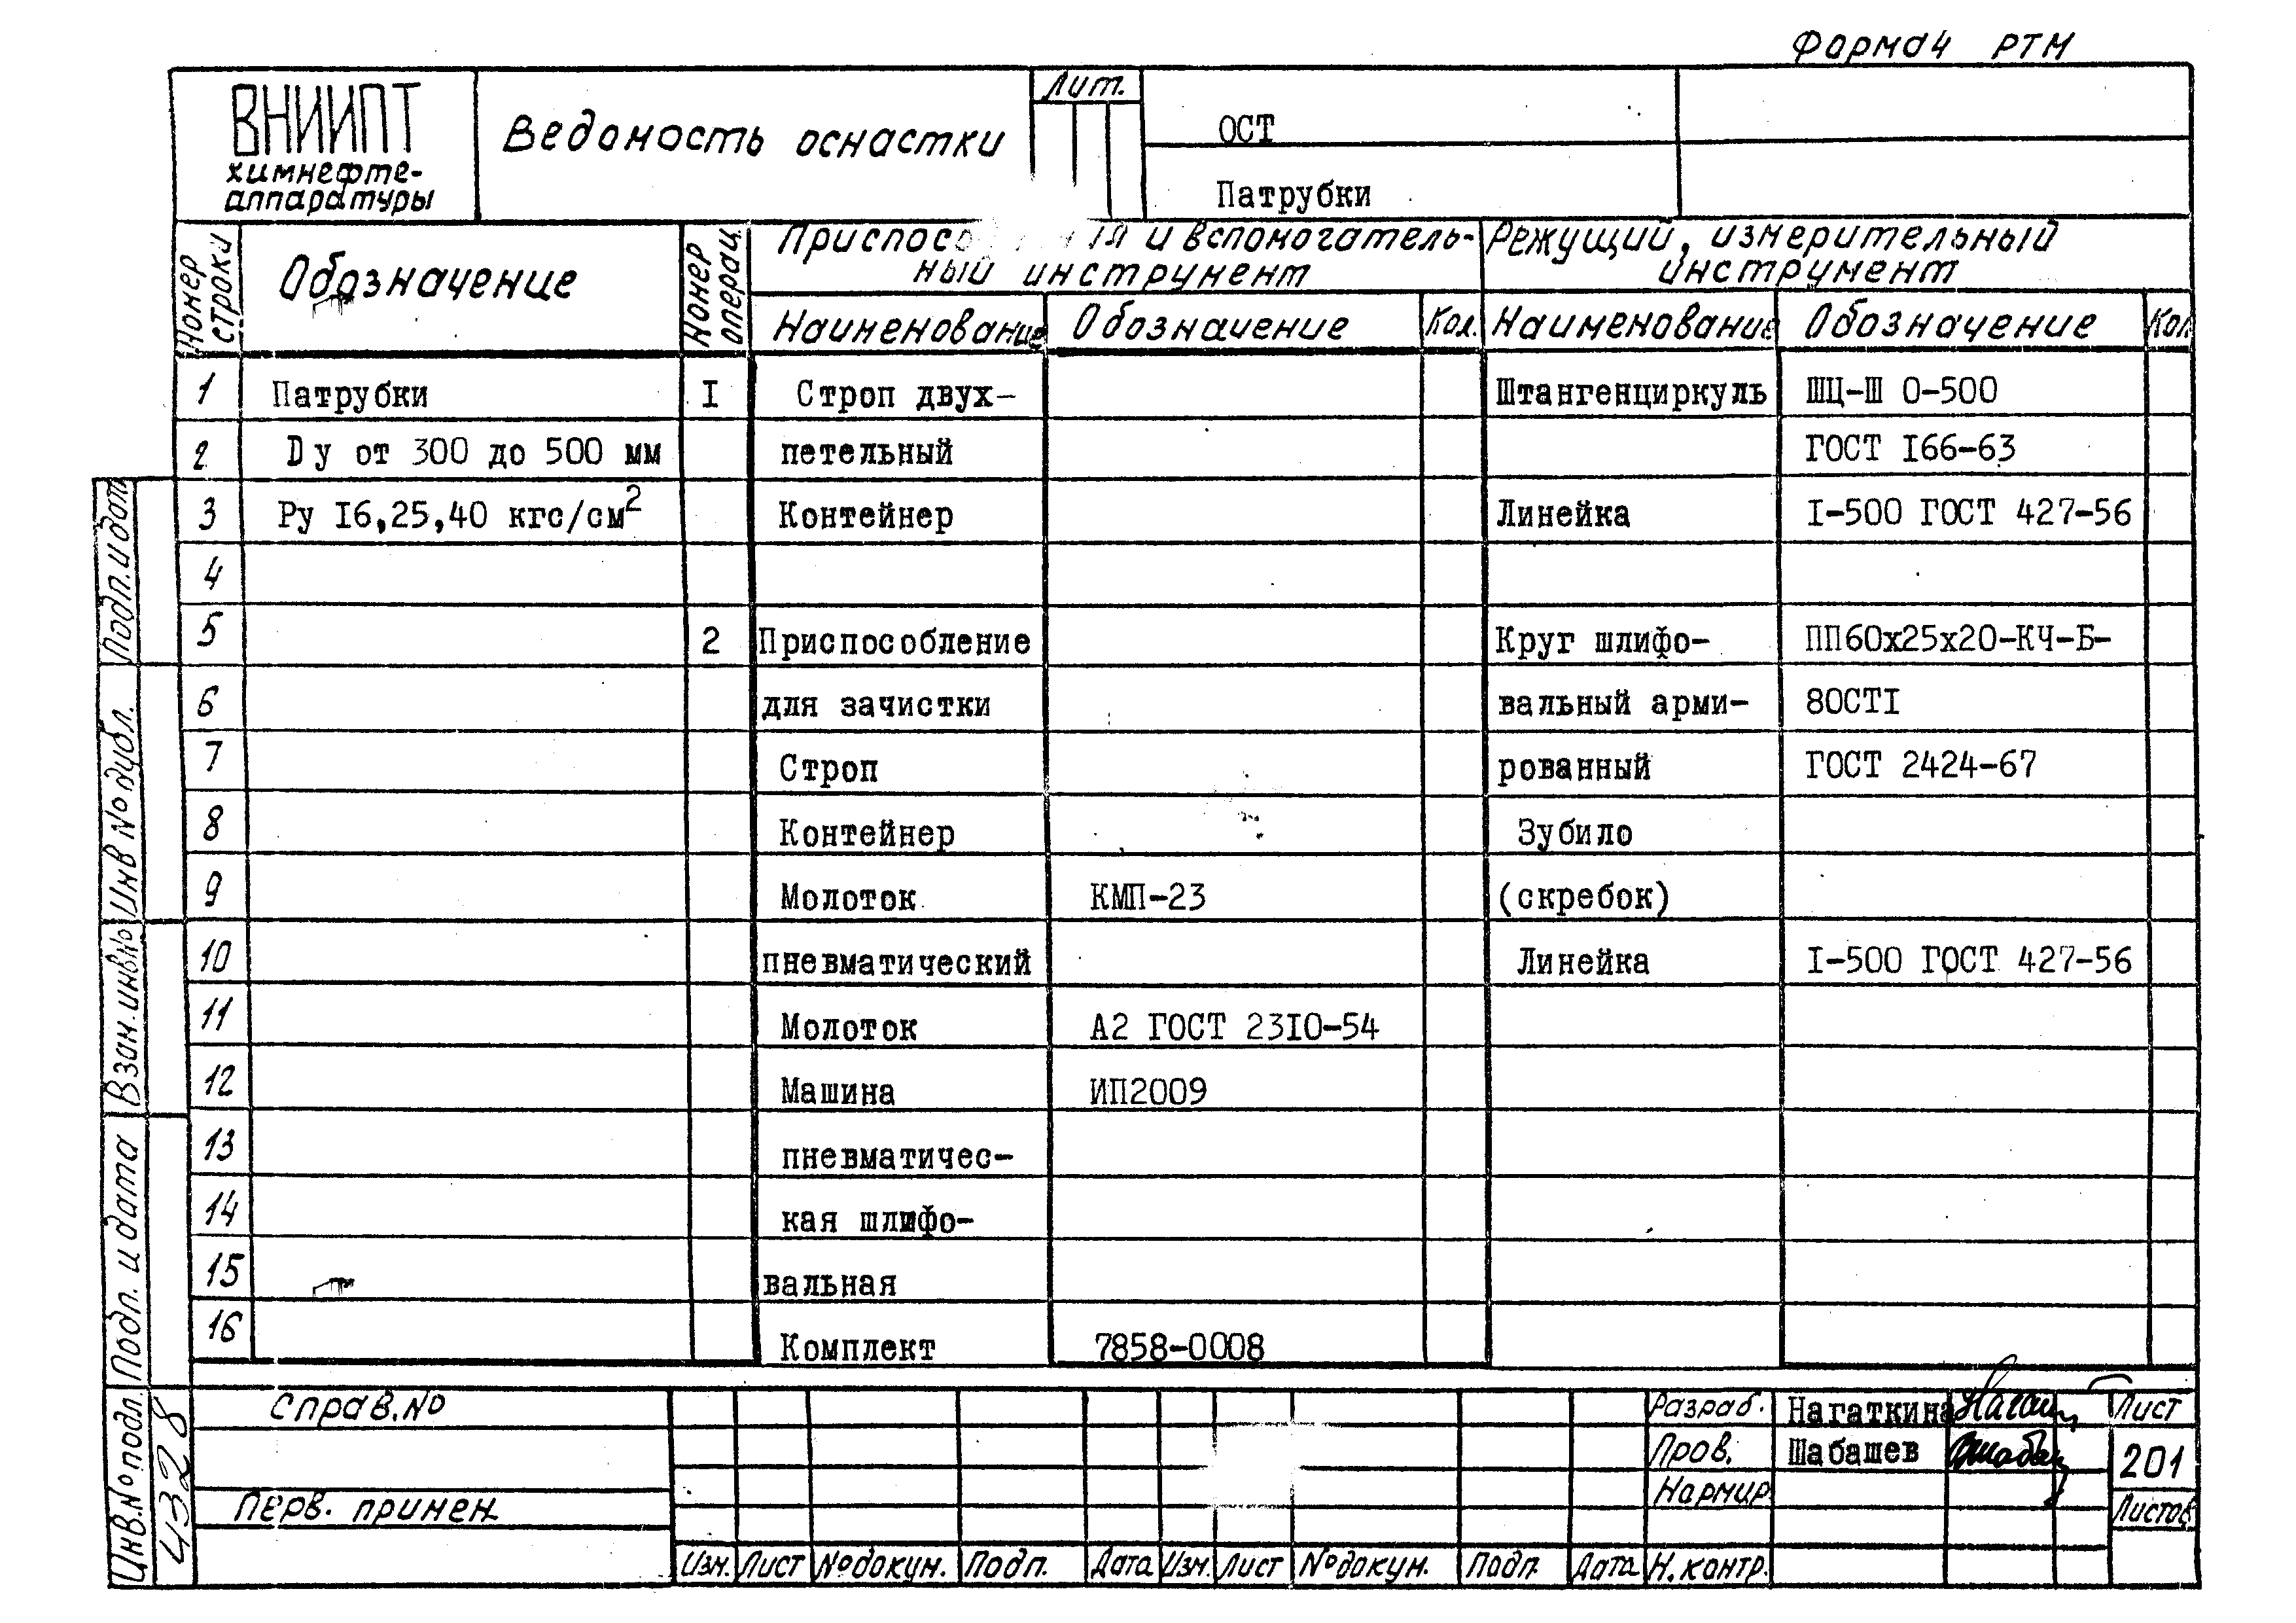 Форма 4 РТМ
ВНИИПТ
химнефте-
аппаратуры
Ведомость оснастки
Лит.
ОСТ
Патрубки
Номер строки
Обозначение
Номер операц.
и вспомогатель-
ный инструмент
Режущий, измерительный
инструмент
Наименование Обозначение Кол. Наименование Обозначение Кол.
1 Патрубки I Строп двух- Штангенциркуль ШЦ-Ш 0-500
2 Dу от 300 до 500 мм петельный ГОСТ I66-63
3 Ру I6,25,40 кгс/см2 Контейнер Линейка I-500 ГОСТ 427-56
4
5 2 Приспособление Круг шлифо- ПП60х25х20-КЧ-Б-
6 для зачистки вальный арми- 80СТI
7 Строп рованный ГОСТ 2424-67
8 Контейнер Зубило
9 Молоток КМП-23 (скребок)
10 пневматический Линейка I-500 ГОСТ 427-56
11 Молоток А2 ГОСТ 23I0-54
12 Машина ИП2009
13 пневматичес-
14 кая шлифо-
15 вальная
16 Комплект 7858-0008
Подп. и дата
Инв № дубл.
Взам. инв №
Подп. и дата
Инв. № подл.
4328
Справ. №
Перв. примен.
Разраб. Нагаткина Лист
Пров. Шабашев 201
Нормир
Листов
Изм. Лист № докум. Подп. Дата Изм. Лист № докум. Подп. Дата Н. контр.